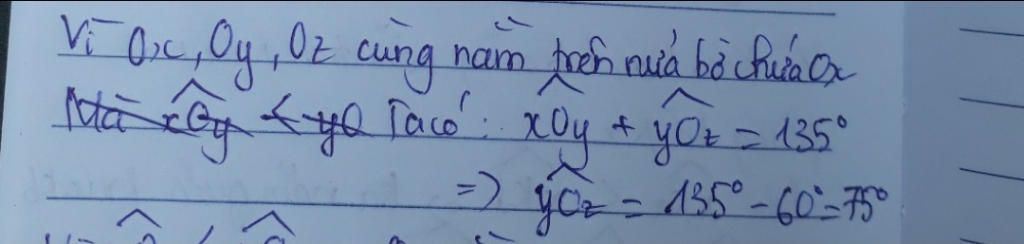 Vì Ox, Oy, Oz cùng nằm trên nửa bờ chứa Ox
Mà xOy < yO Ta có: xOy + yOz = 135°
=> yOz = 135° - 60° = 75°